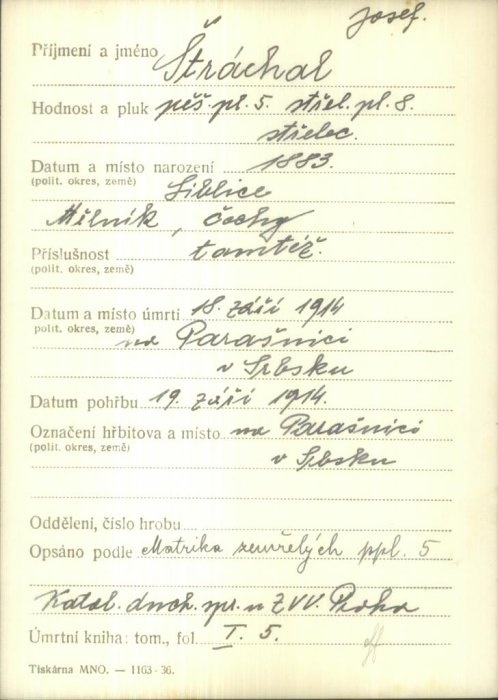 Josef.
Příjmení a jméno Štráchal
Hodnost a pluk pěš. pl. 5. střel. pl. 8.
střelec.
Datum a místo narození 1883.
(polit. okres, země) Liblice
Mělník, čechy
Příslušnost tamtéž.
(polit. okres, země)
Datum a místo úmrtí 18. září 1914
polit. okres, země) na Parašnici
v Srbsku
Datum pohřbu 19. září 1914.
Označení hřbitova a místo na Parašnici
(polit. okres, země) v Srbsku
Oddělení, číslo hrobu
Opsáno podle Matrika zemřelých ppl. 5
Katol. duch. spr. u ZVV. Praha
Úmrtní kniha: tom., fol. I. 5.
Tiskárna MNO. — 1163-36.